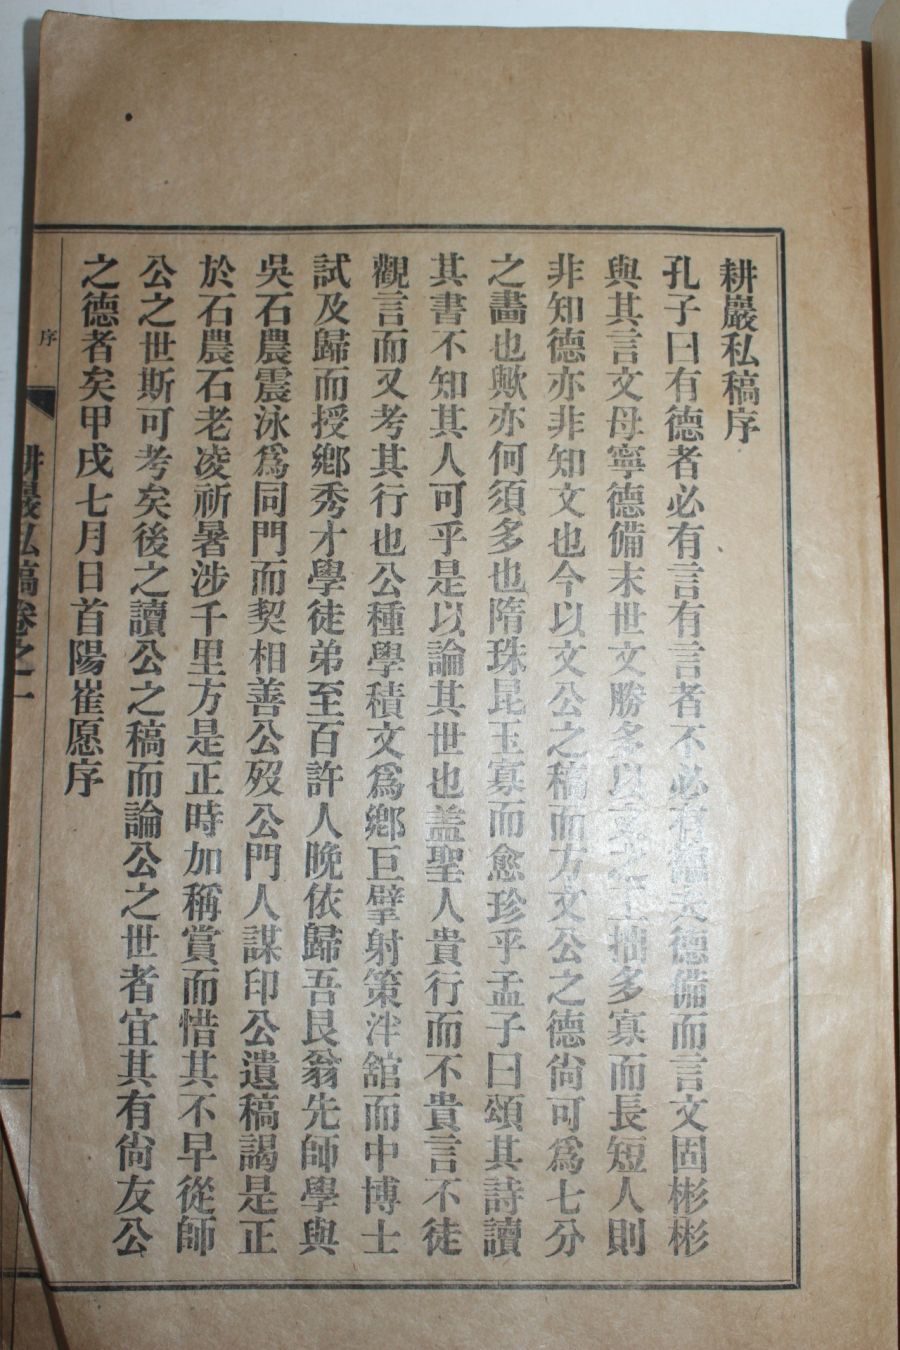 耕巖私稿序
孔子曰有德者必有言有言者不必有德夫德備而言文固彬彬
與其言文母寧德備末世文勝多以之工拙多寡而長短人則
非知德亦非知文也今以文公之稿而方文公之德尙可爲七分
之畵也歟亦何須多也隋珠昆玉寡而愈珍乎孟子曰頌其詩讀
其書不知其人可乎是以論其世也盖聖人貴行而不貴言不徒
觀言而又考其行也公種學積文爲鄕巨擘射策泮舘而中博士
試及歸而授鄕秀才學徒弟至百許人晩依歸吾艮翁先師學與
吳石農震泳爲同門而契相善公歿公門人謀印公遺稿謁是正
於石農石老凌祈暑涉千里方是正時加稱賞而惜其不早從師
公之世斯可考矣後之讀公之稿而論公之世者宜其有尙友公
之德者矣甲戌七月日首陽崔愿序
序
耕巖私稿卷之一
一